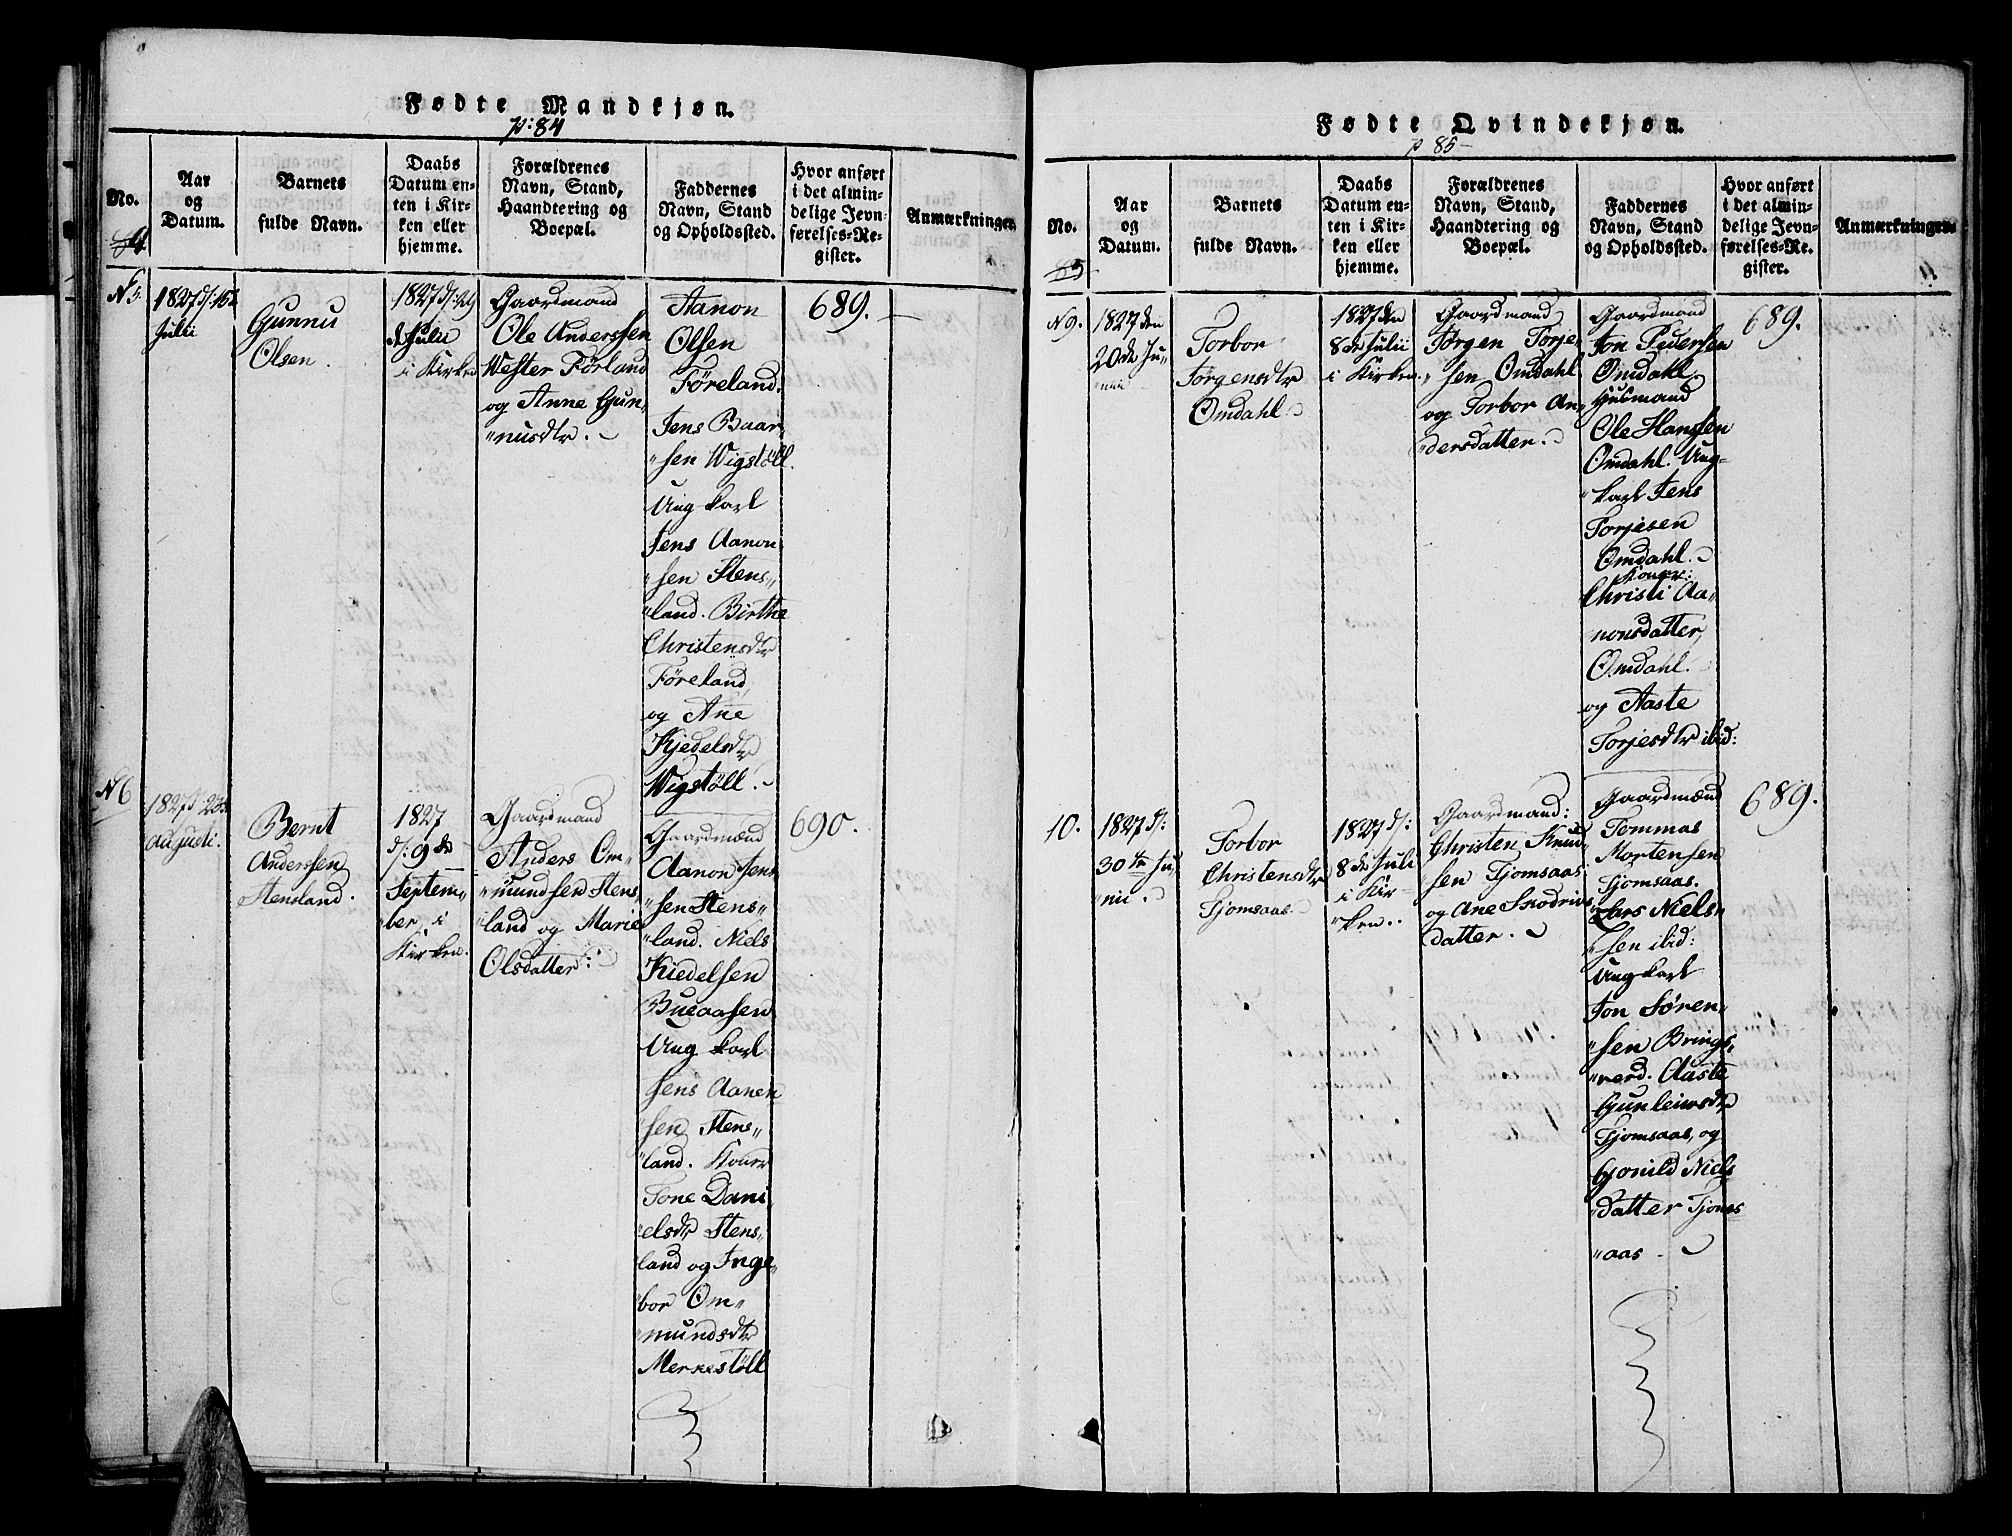 Fødte Mandkjøn.
p: 84
No.
Aar
og
Datum.
Barnets
fulde Navn.
Daabs
Datum en-
ten i Kir-
ken eller
hjemme.
Forældrenes
Navn, Stand,
Haandtering og
Boepæl.
Faddernes
Navn, Stand
og Opholdssted.
Hvor anført
i det almin-
delige Jevn-
førelses-Re-
gister.
Anmærkninger.
N 5.
1827 d: 16de
Julii
Gunnu
Olsen.
1827 d: 29
de Julii
i Kirken
Gaardmand
Ole Anderssen
Wester Förland
og Anne Gun„
„nusdtr.
Aanon
Olsen
Föreland.
Jens Baar„
„sen Wigstöll.
Ung karl
Jens Aanon„
„sen Stens„
„land. Birthe
Christensdtr
Föreland
og Ane
Kjedelsdtr
Wigstöll.
689.
N 6
1827 d: 23de
Augusti.
Bernt
Anderssen
Stensland.
1827
d: 9de
Septem„
ber, i
Kirken.
Gaardmand
Anders Om„
„mundsen Stens„
„land og Marie
Olsdatter.
Gaardmænd
Aanon Jens„
„sen Stens„
„land. Niels
Kiedelsen
Bueaasen
Ung karl
Jens Aanen
sen Stens„
„land. Koner
Tone Dani„
„elsdtr Stens„
„land og Inge„
bor Om„
„mundsdtr
Merkestöll
690.
Fødte Qvindekjøn.
p 85
No.
Aar
og
Datum.
Barnets
fulde Navn.
Daabs
Datum en-
ten i Kir-
ken eller
hjemme.
Forældrenes
Navn, Stand,
Haandtering og
Boepæl.
Faddernes
Navn, Stand
og Opholdssted.
Hvor anført
i det almin-
delige Jevn-
førelses-Re-
gister.
Anmærkninger.
N 9.
1827 den
20de Ju„
„nii
Torbor
Jörgensdtr
Omdahl.
1827 den
8de Julii
i Kirken.
Gaardmand
Jörgen Torje„
„sen Omdahl
og Torbor An„
„dersdatter.
Gaardmand
Jon Pedersen
Omdahl.
Huusmand
Ole Hansen
Omdahl. Ung„
„karl Jens
Torjesen
Omdahl.
Koner:
Christi Aa„
nonsdatter,
Omdahl.
og Aaste
Torjesdtr ibid:
689.
10.
1827 d:
30te Ju„
„nii.
Torbor
Christensdtr
Tjomsaas.
1827 d:
8de Juli
i Kir„
„ken.
Gaardmand:
Christen Knud„
„sen Tjomsaas
og Ane Snodrius
datter.
Gaardmænd
Tommas
Mortensen
Tjomsaas.
Lars Niels„
„sen ibid:
Ung karl
Jon Sören„
„sen Brings„
„verd. Aaste
Gunleivsdtr
Tjomsaas, og
Gjonild Niels
„datter Tjoms
„aas.
689.